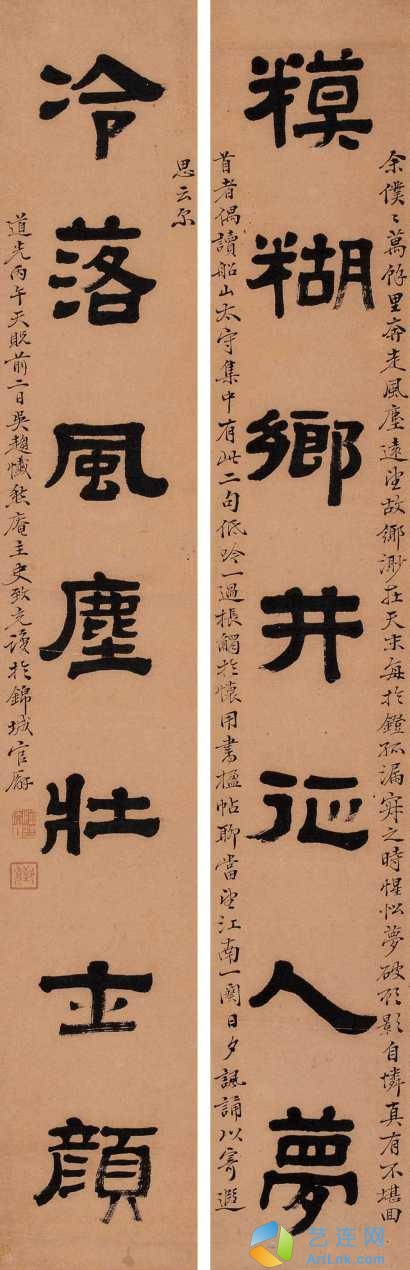 余僕〻萬餘里奔走風塵遠望故鄉渺在天末每於鐙孤漏寂之時惺忪夢破顧影自憐真有不堪回
糢糊鄉井征人夢
首者偶讀船山太守集中有此二句低吟一過棖觸於懷用書楹帖聊當望江南一闋日夕諷誦以寄遐
思云尔
冷落風塵壯士顏
道光丙午天貺前二日吳趨懺愁庵主史致充識於錦城官廨
艺连网
ArtLnk.com